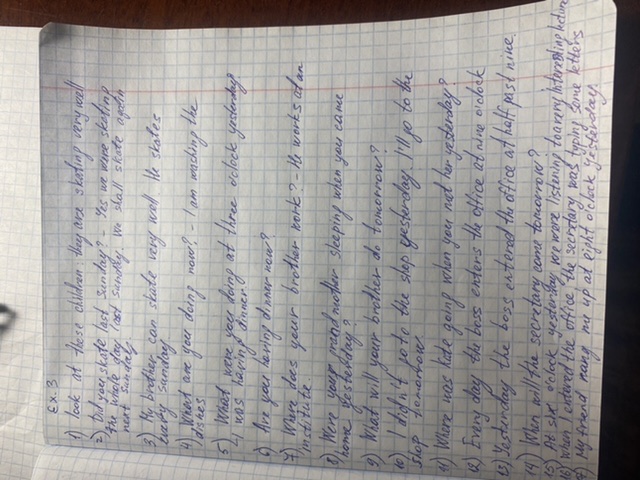 Ex. 3
1) Look at these children they are skating very well
2) Did you skate last Sunday? - Yes we were skating
the whole day last sunday. We shall skate again
next sunday.
3) My brother can skate very well He skates
every Sunday
4) What are you doing now? - I am washing the
dishes
5) What were you doing at three o'clock yesterday?
I was having dinner
6) Are you having dinner now?
7) Where does your brother work? - He works at an
institute.
8) Were your grandmother sleeping when you came
home yesterday?
9) What will your brother do tomorrow?
10) I didn't go to the shop yesterday I'll go to the
shop tomorrow
11) Where was Kate going when you met her yesterday?
12) Every day the boss enters the office at nine o'clock
13) Yesterday the boss entered the office at half past nine.
14) When will the secretary come tomorrow?
15) At six o'clock yesterday we were listening to a very interesting lecture
16) When I entered the office the secretary was typing some letters
17) My friend me up at eight o'clock yesterday